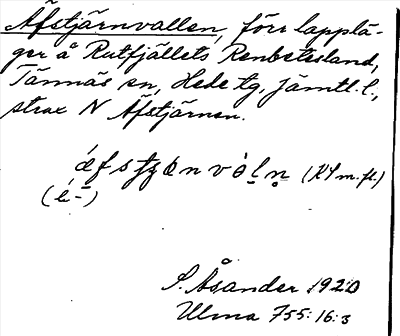 Äfstjärnvallen, förr lapplä-
ger å Rutfjällets Renbetesland,
Tännäs sn, Hede tg, Jämtl. l.,
strax N Äfstjärnen.
(K4 m. fl.)
S. Åsander 1920
Ulma 755: 16: 3